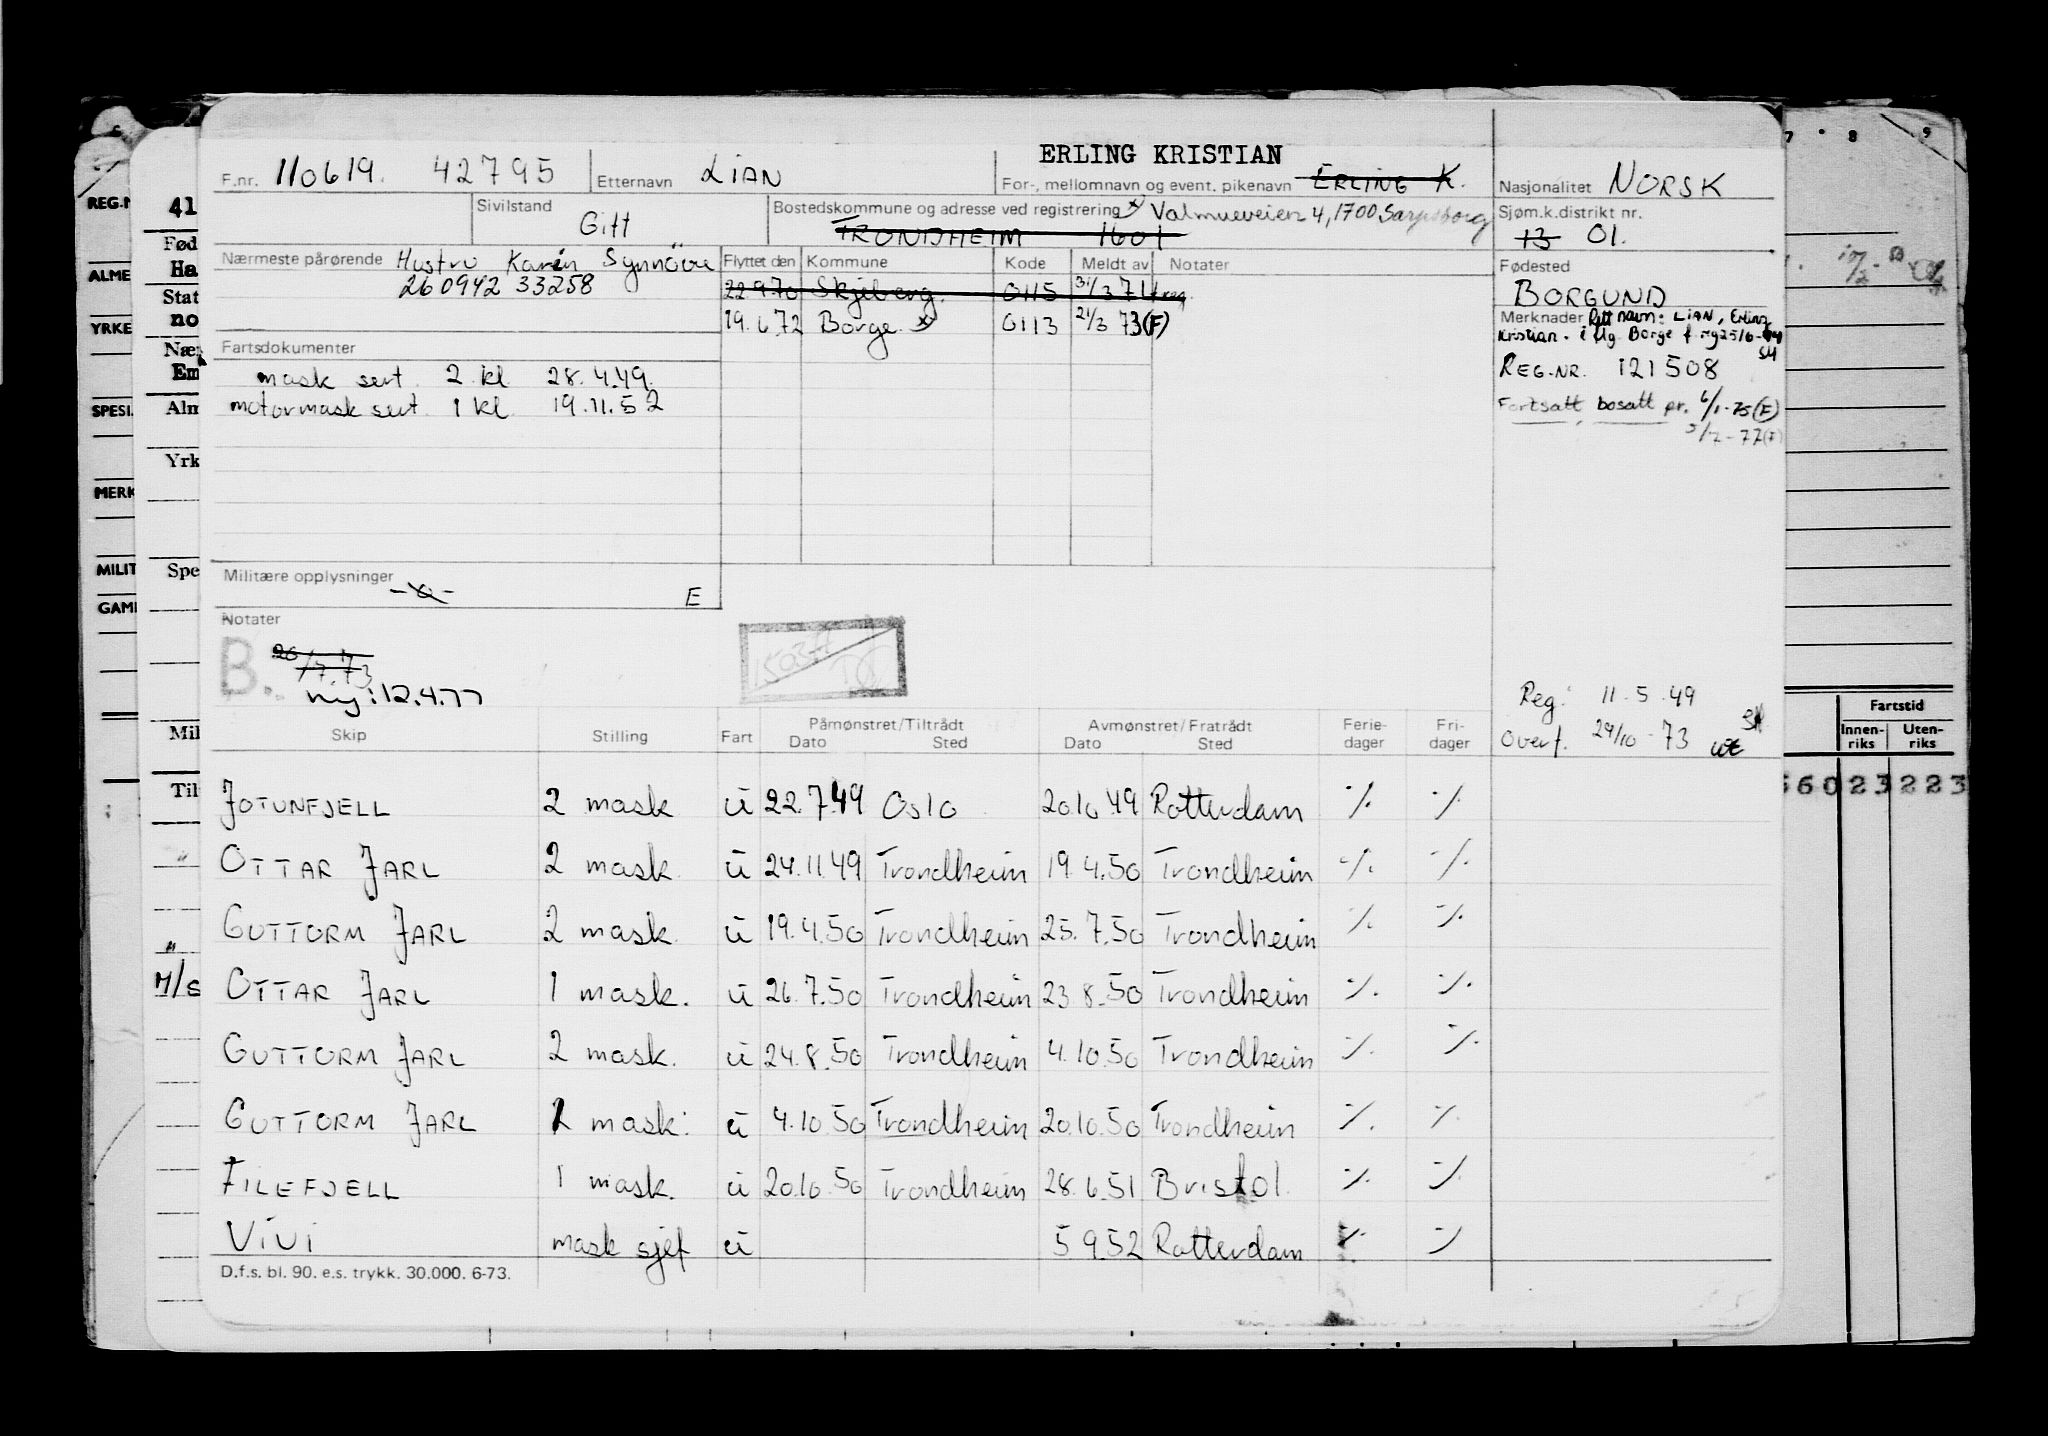 ERLING KRISTIAN
F.nr. 110619. 42795 Etternavn LIAN For-, mellomnavn og event. pikenavn ERLING K. Nasjonalitet NORSK
Sivilstand Gift Bostedskommune og adresse ved registrering x Valmueveien 4, 1700 Sarpsborg Sjøm.k.distrikt nr.
TRONDHEIM 1601 13 01.
Nærmeste pårørende Hustru Karin Synnöve Flyttet den Kommune Kode Meldt av Notater Fødested
260942 33258 22.9.70 Skjeberg. 0115 31/3 71 reg. BORGUND
19.6.72 Borge x 0113 21/3 73 (F) Merknader Rett navn: LIAN, Erling
Kristian. i flg. Borge f.reg 25/6-
Fartsdokumenter SH
mask sert. 2 kl 28.4.49. REG.NR. 121508
motormask sert. 1 kl 19.11.52 Fortsatt bosatt pr. 6/1-75 (F)
5/7-77 (F)
Militære opplysninger E
Notater
B. 26/7.73
ny: 12.4.77
Reg: 11.5.49
Overf. 29/10-73
Skip Stilling Fart Påmønstret/Tiltrådt Dato Sted Avmønstret/Fratrådt Dato Sted Ferie-dager Fri-dager
JOTUNFJELL 2 mask u 22.7.49 Oslo 20.10.49 Rotterdam ./. ./.
OTTAR JARL 2 mask u 24.11.49 Trondheim 19.4.50 Trondheim ./. ./.
GUTTORM JARL 2 mask. u 19.4.50 Trondheim 25.7.50 Trondheim ./. ./.
OTTAR JARL 1 mask. u 26.7.50 Trondheim 23.8.50 Trondheim ./. ./.
GUTTORM JARL 2 mask. u 24.8.50 Trondheim 4.10.50 Trondheim ./. ./.
GUTTORM JARL mask. u 4.10.50 Trondheim 20.10.50 Trondheim ./. ./.
FILEFJELL 1 mask. u 20.10.50 Trondheim 28.6.51 Bristol. ./. ./.
VIVI mask sjef u 5.9.52 Rotterdam ./. ./.
D.f.s. bl. 90. e.s. trykk. 30.000. 6-73.
REG.N
ALME
YRKE
SPESI.
MERK
MILIT
GAM
41
Fød
Ha
Stat
no
Næ
Em
Alm
Yrk
Spe
Mil
Til
M/S
7 8 9
Fartstid
Innen-riks Uten-riks
56023223